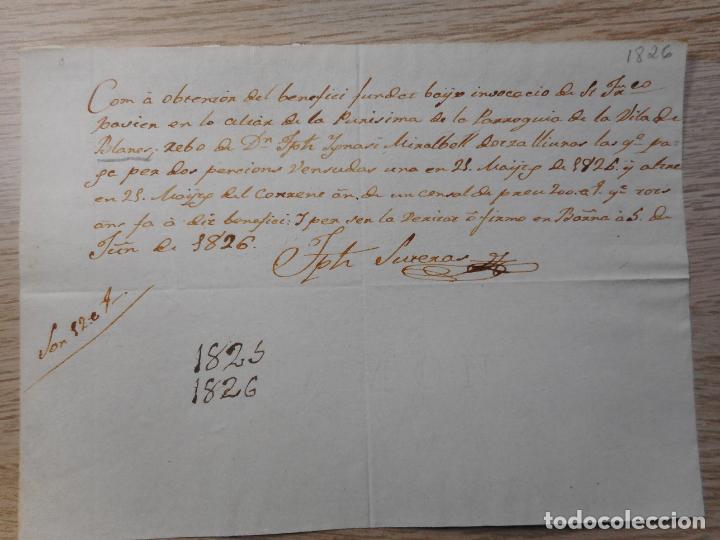 1826
Com à obtenzor del benefici fundat baijx invocacio de St. Fr.co
Xavier en lo altar de la Purisima de la Parroquia de la Vila de
Blanes, rebo de Dn. Jph Ignasi Miralbell dotza lliuras las q.e pa-
ga per dos pensions vensudas una en 21 Maitg de 1825. y altre
en 21 Maitg del corrent añ. de un censal de preu 200. q.e tots
ans fa à dit benefici: Y per ser la veritat o firmo en Barna à 5 de
Juñ de 1826.
Jph Sureras
Son 12.
1825
1826
todocoleccion
todocoleccion.net